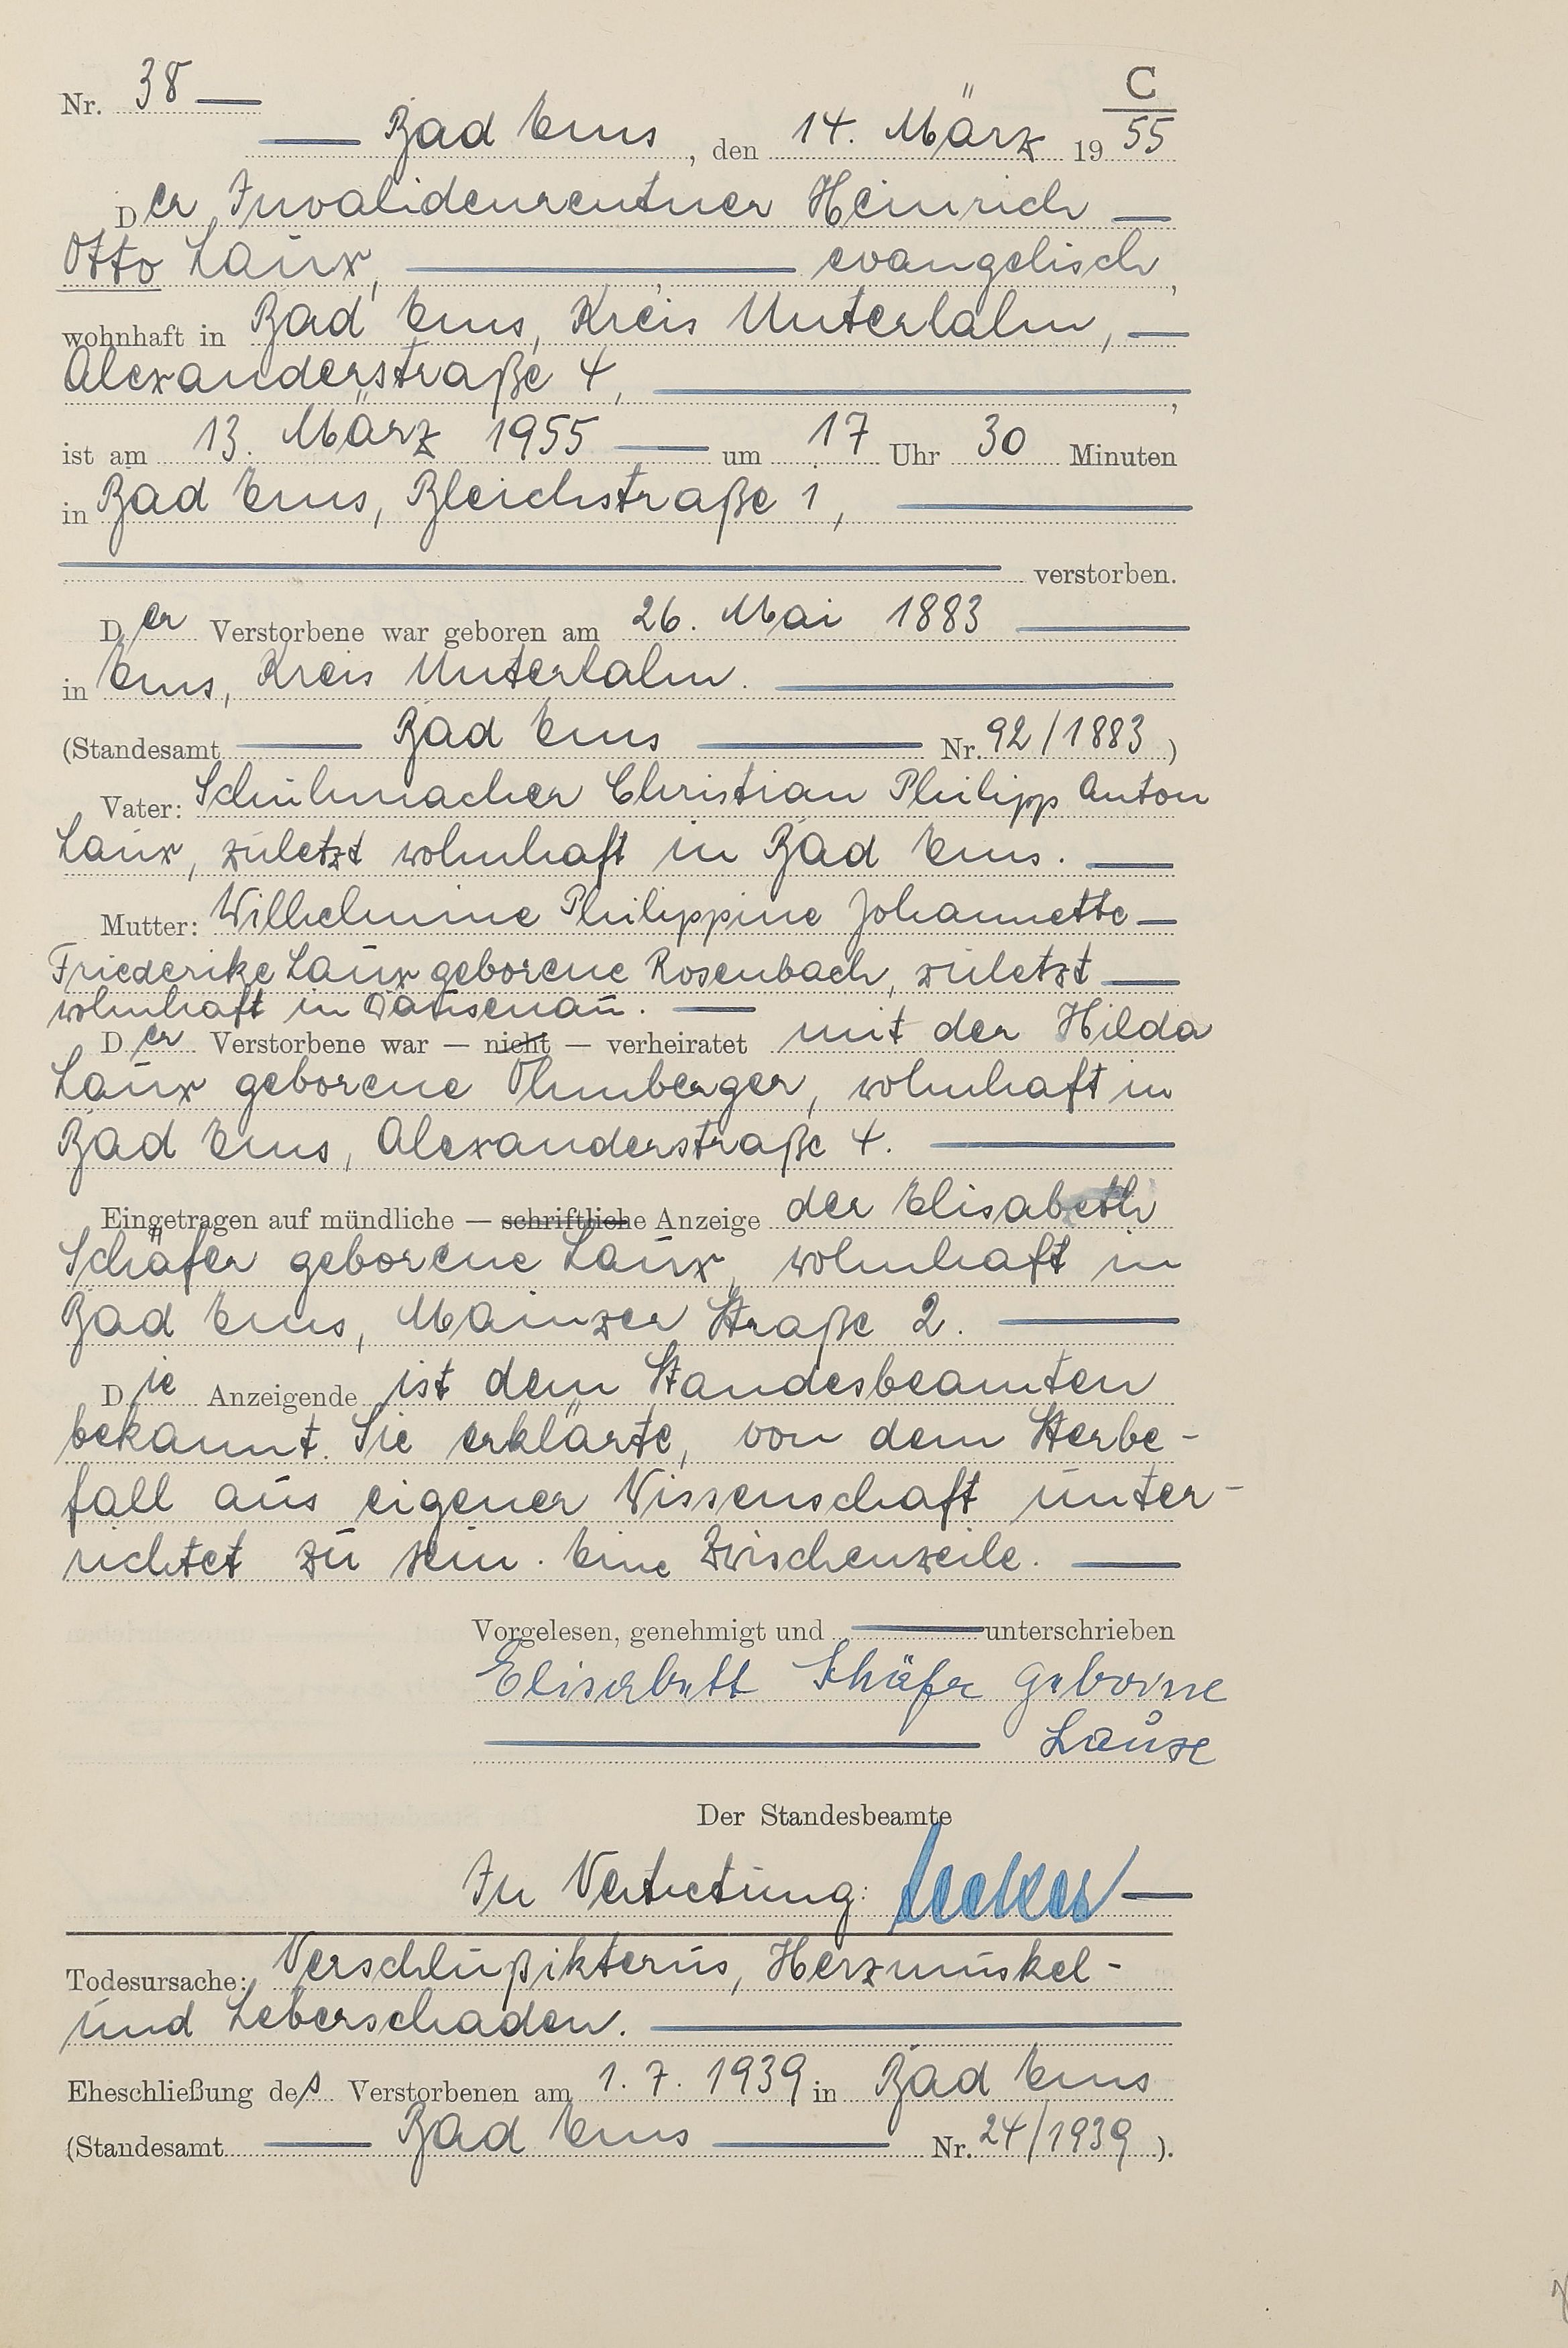 C
Nr. 38
Bad Ems, den 14. März 1955
Der Invalidenrentner Heinrich
Otto Laux, evangelisch,
wohnhaft in Bad Ems, Kreis Unterlahn,
Alexanderstraße 4,
ist am 13. März 1955 um 17 Uhr 30 Minuten
in Bad Ems, Bleichstraße 1,
verstorben.
Der Verstorbene war geboren am 26. Mai 1883
in Ems, Kreis Unterlahn.
(Standesamt Bad Ems Nr. 92/1883)
Vater: Schuhmacher Christian Philipp Anton
Laux, zuletzt wohnhaft in Bad Ems.
Mutter: Wilhelmine Philippine Johannette
Friederike Laux geborene Rosenbach, zuletzt
wohnhaft in Dausenau.
Der Verstorbene war — nicht — verheiratet mit der Hilda
Laux geborene Ohmberger, wohnhaft in
Bad Ems, Alexanderstraße 4.
Eingetragen auf mündliche — schriftliche Anzeige der Elisabeth
Schäfer geborene Laux, wohnhaft in
Bad Ems, Mainzer Straße 2.
Die Anzeigende ist dem Standesbeamten
bekannt. Sie erklärte, von dem Sterbe-
fall aus eigener Wissenschaft unter-
richtet zu sein. Eine Zwischenzeile.
Vorgelesen, genehmigt und unterschrieben
Elisabett Schäfer geborne
Laux
Der Standesbeamte
In Vertretung:
Todesursache: Verschlußikterus, Herzmuskel-
und Leberschaden.
Eheschließung des Verstorbenen am 1. 7. 1939 in Bad Ems
(Standesamt Bad Ems Nr. 24/1939).